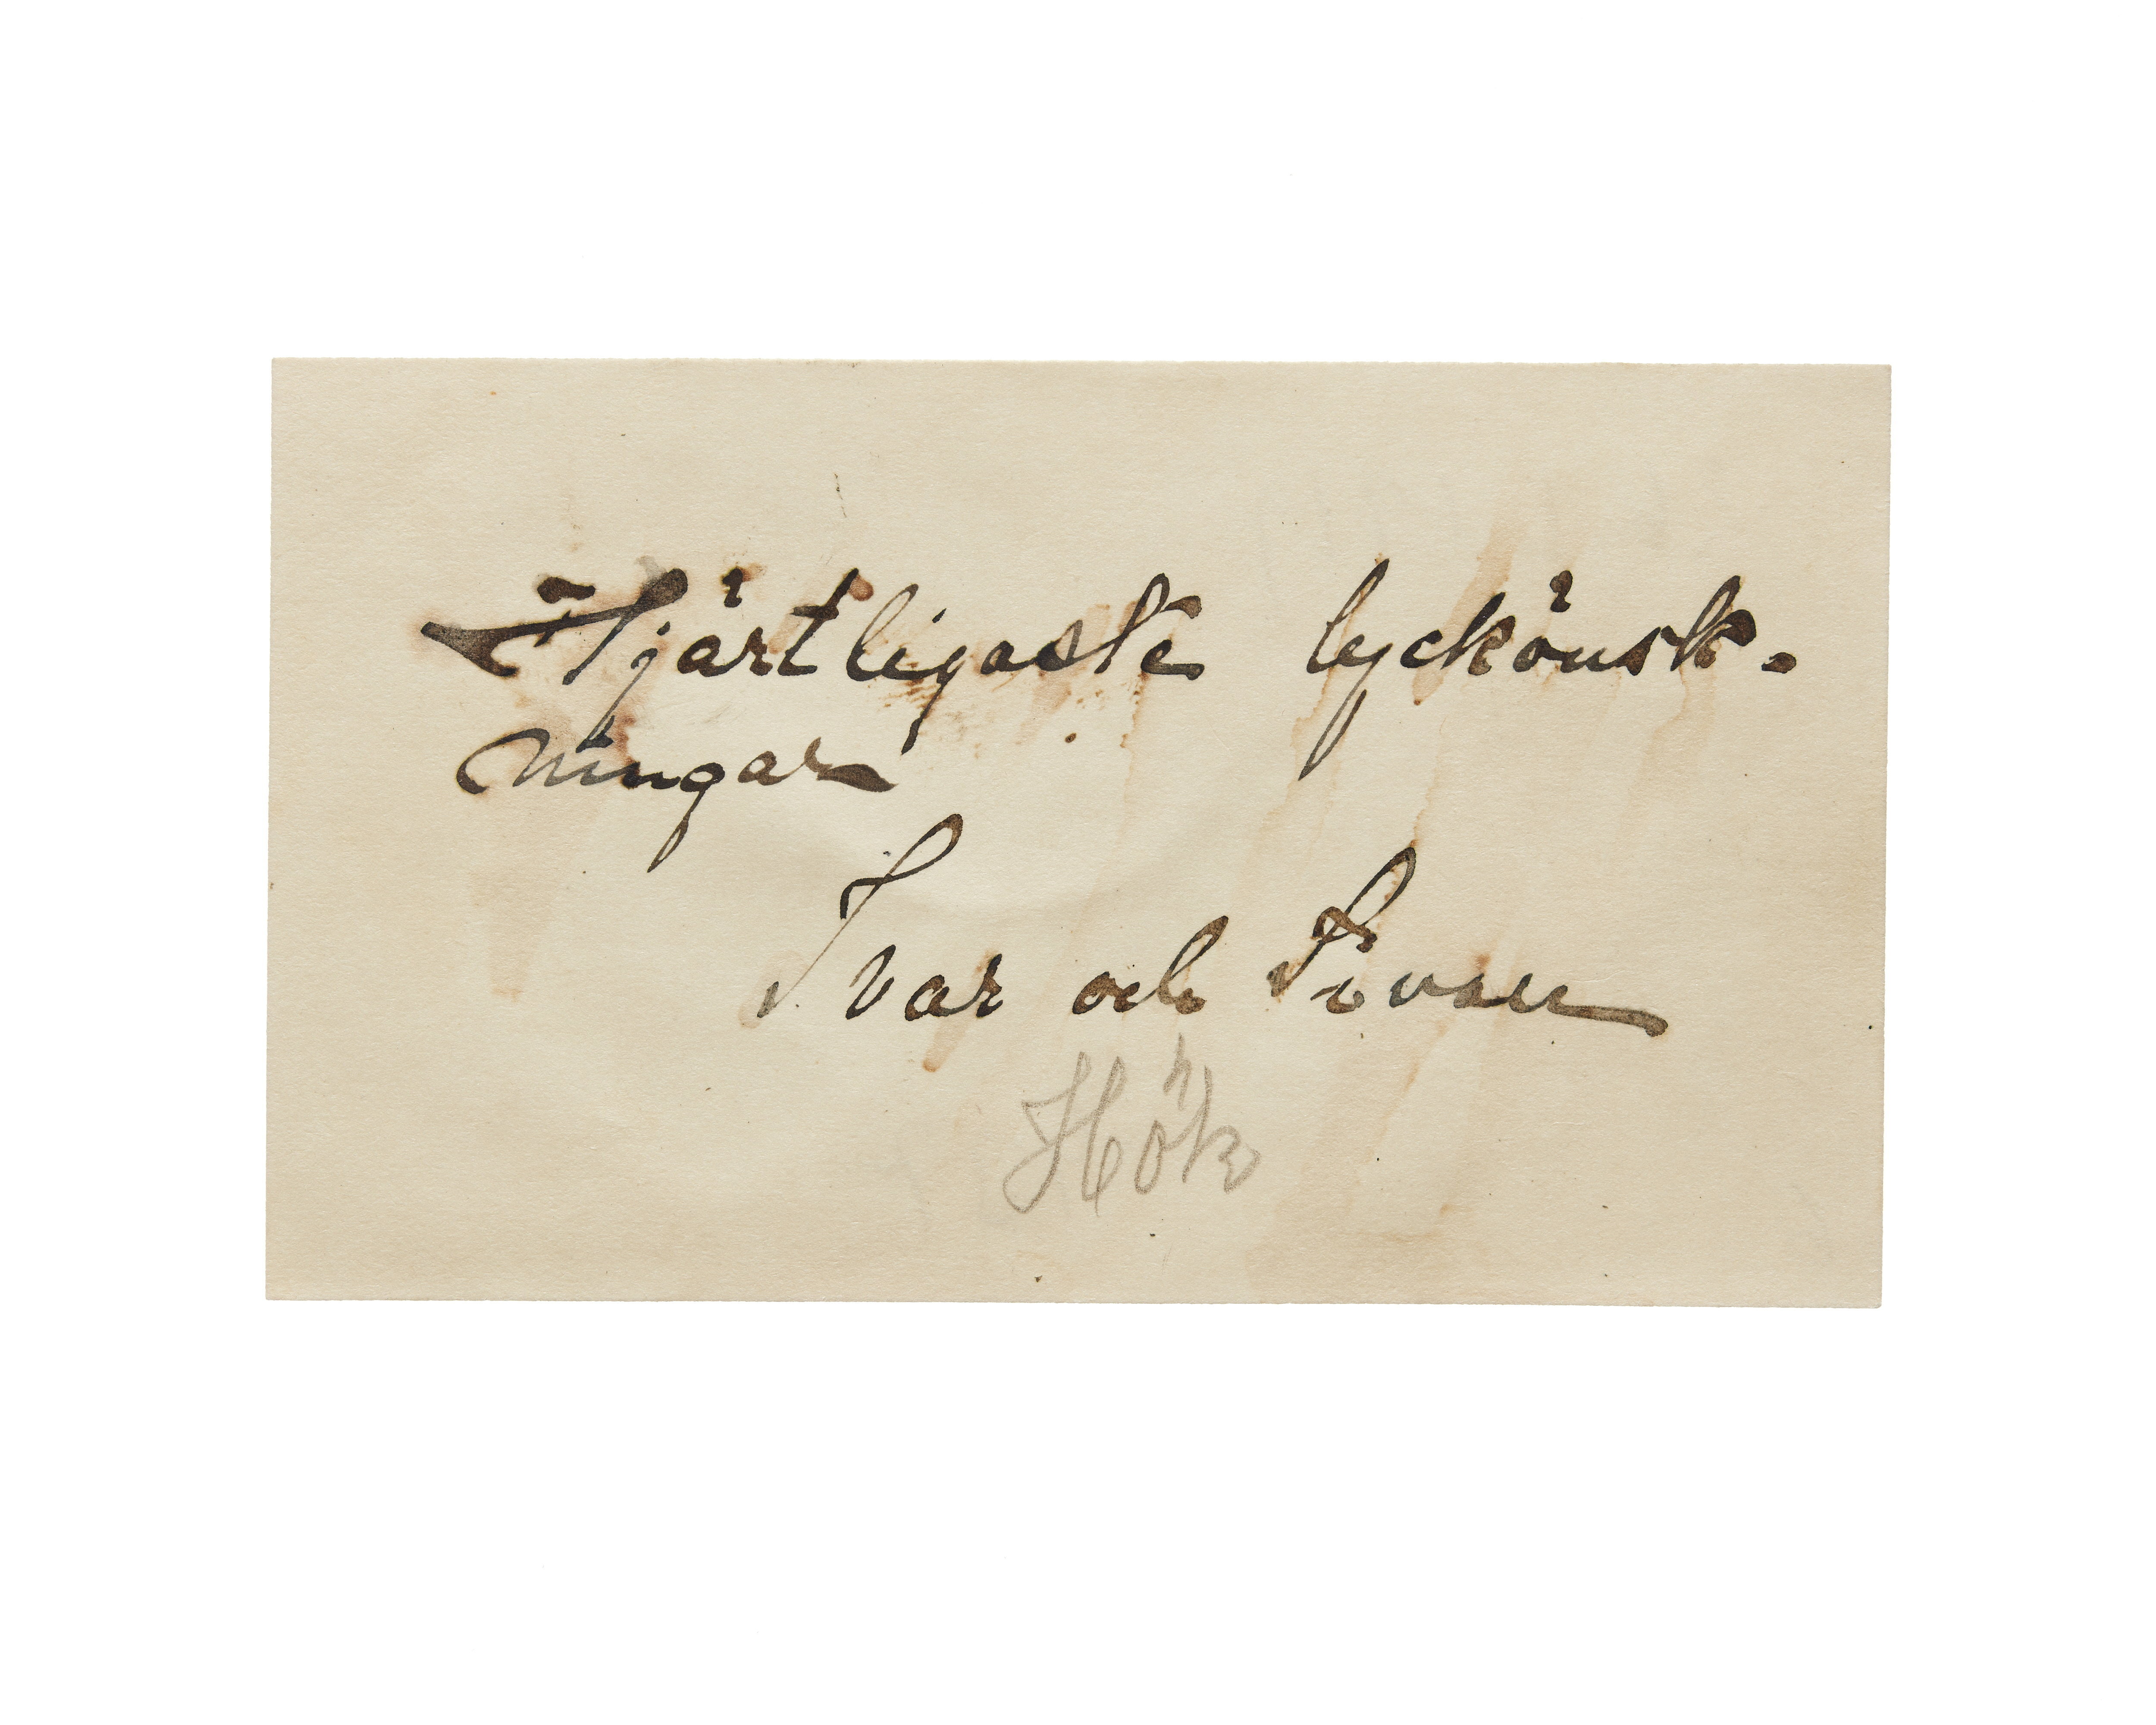 Hjärtligaste lyckönsk-
ningar
Ivar och
Hök